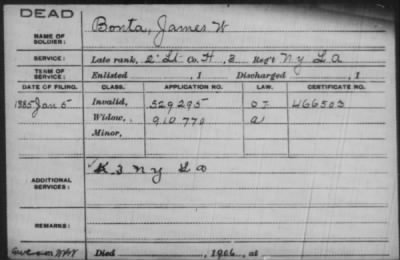 DEAD
NAME OF SOLDIER: Bonta, James W
SERVICE: Late rank, 2' Lt Co. H, 3 Reg't N Y L A
TERM OF SERVICE: Enlisted , 1 Discharged , 1
DATE OF FILING. CLASS. APPLICATION NO. LAW. CERTIFICATE NO.
1885 Jan 5 Invalid, 529295 466503
Widow, 910770
Minor,
ADDITIONAL SERVICES: K 3 N Y L A
REMARKS:
Died , 1906, at